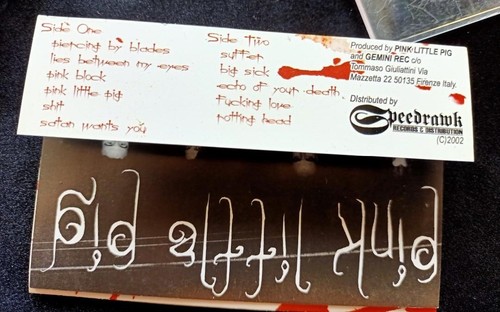 Side One
piercing by blades
lies between my eyes
pink block
pink little pig
shit
satan wants you
Side Two
suffer
big sick
echo of your death
fucking love
rotting head
Produced by PINK LITTLE PIG
and GEMINI REC c/o
Tommaso Giuliattini Via
Mazzetta 22 50135 Firenze Italy.
DIstributed by
Speedrawk
RECORDS & DISTRIBUTION
(C)2002
pink little pig